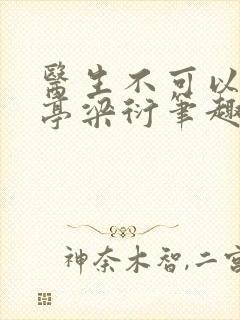 醫生不可以
亭梁衍筆趣
神奈木智,二宮